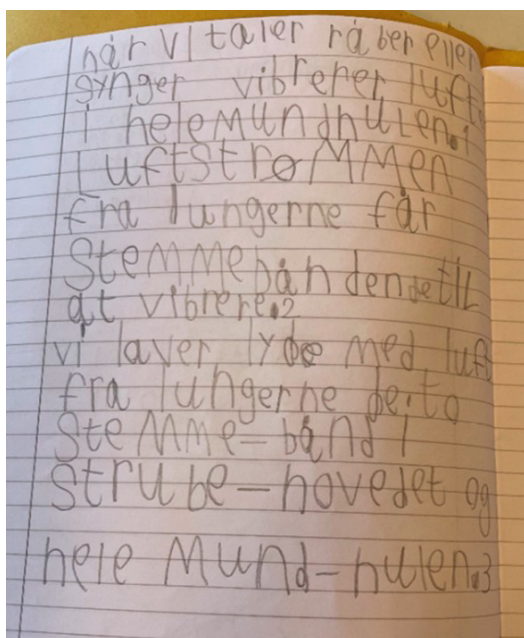 når vi taler råber eller
synger vibrerer luft
i hele mundhulen.1
Luftstrømmen
fra lungerne får
Stemmebåndene til
at vibrere.2
vi laver lyde med luft
fra lungerne de.to
Stemme-bånd i
strube-hovedet og
hele Mund-hulen.3